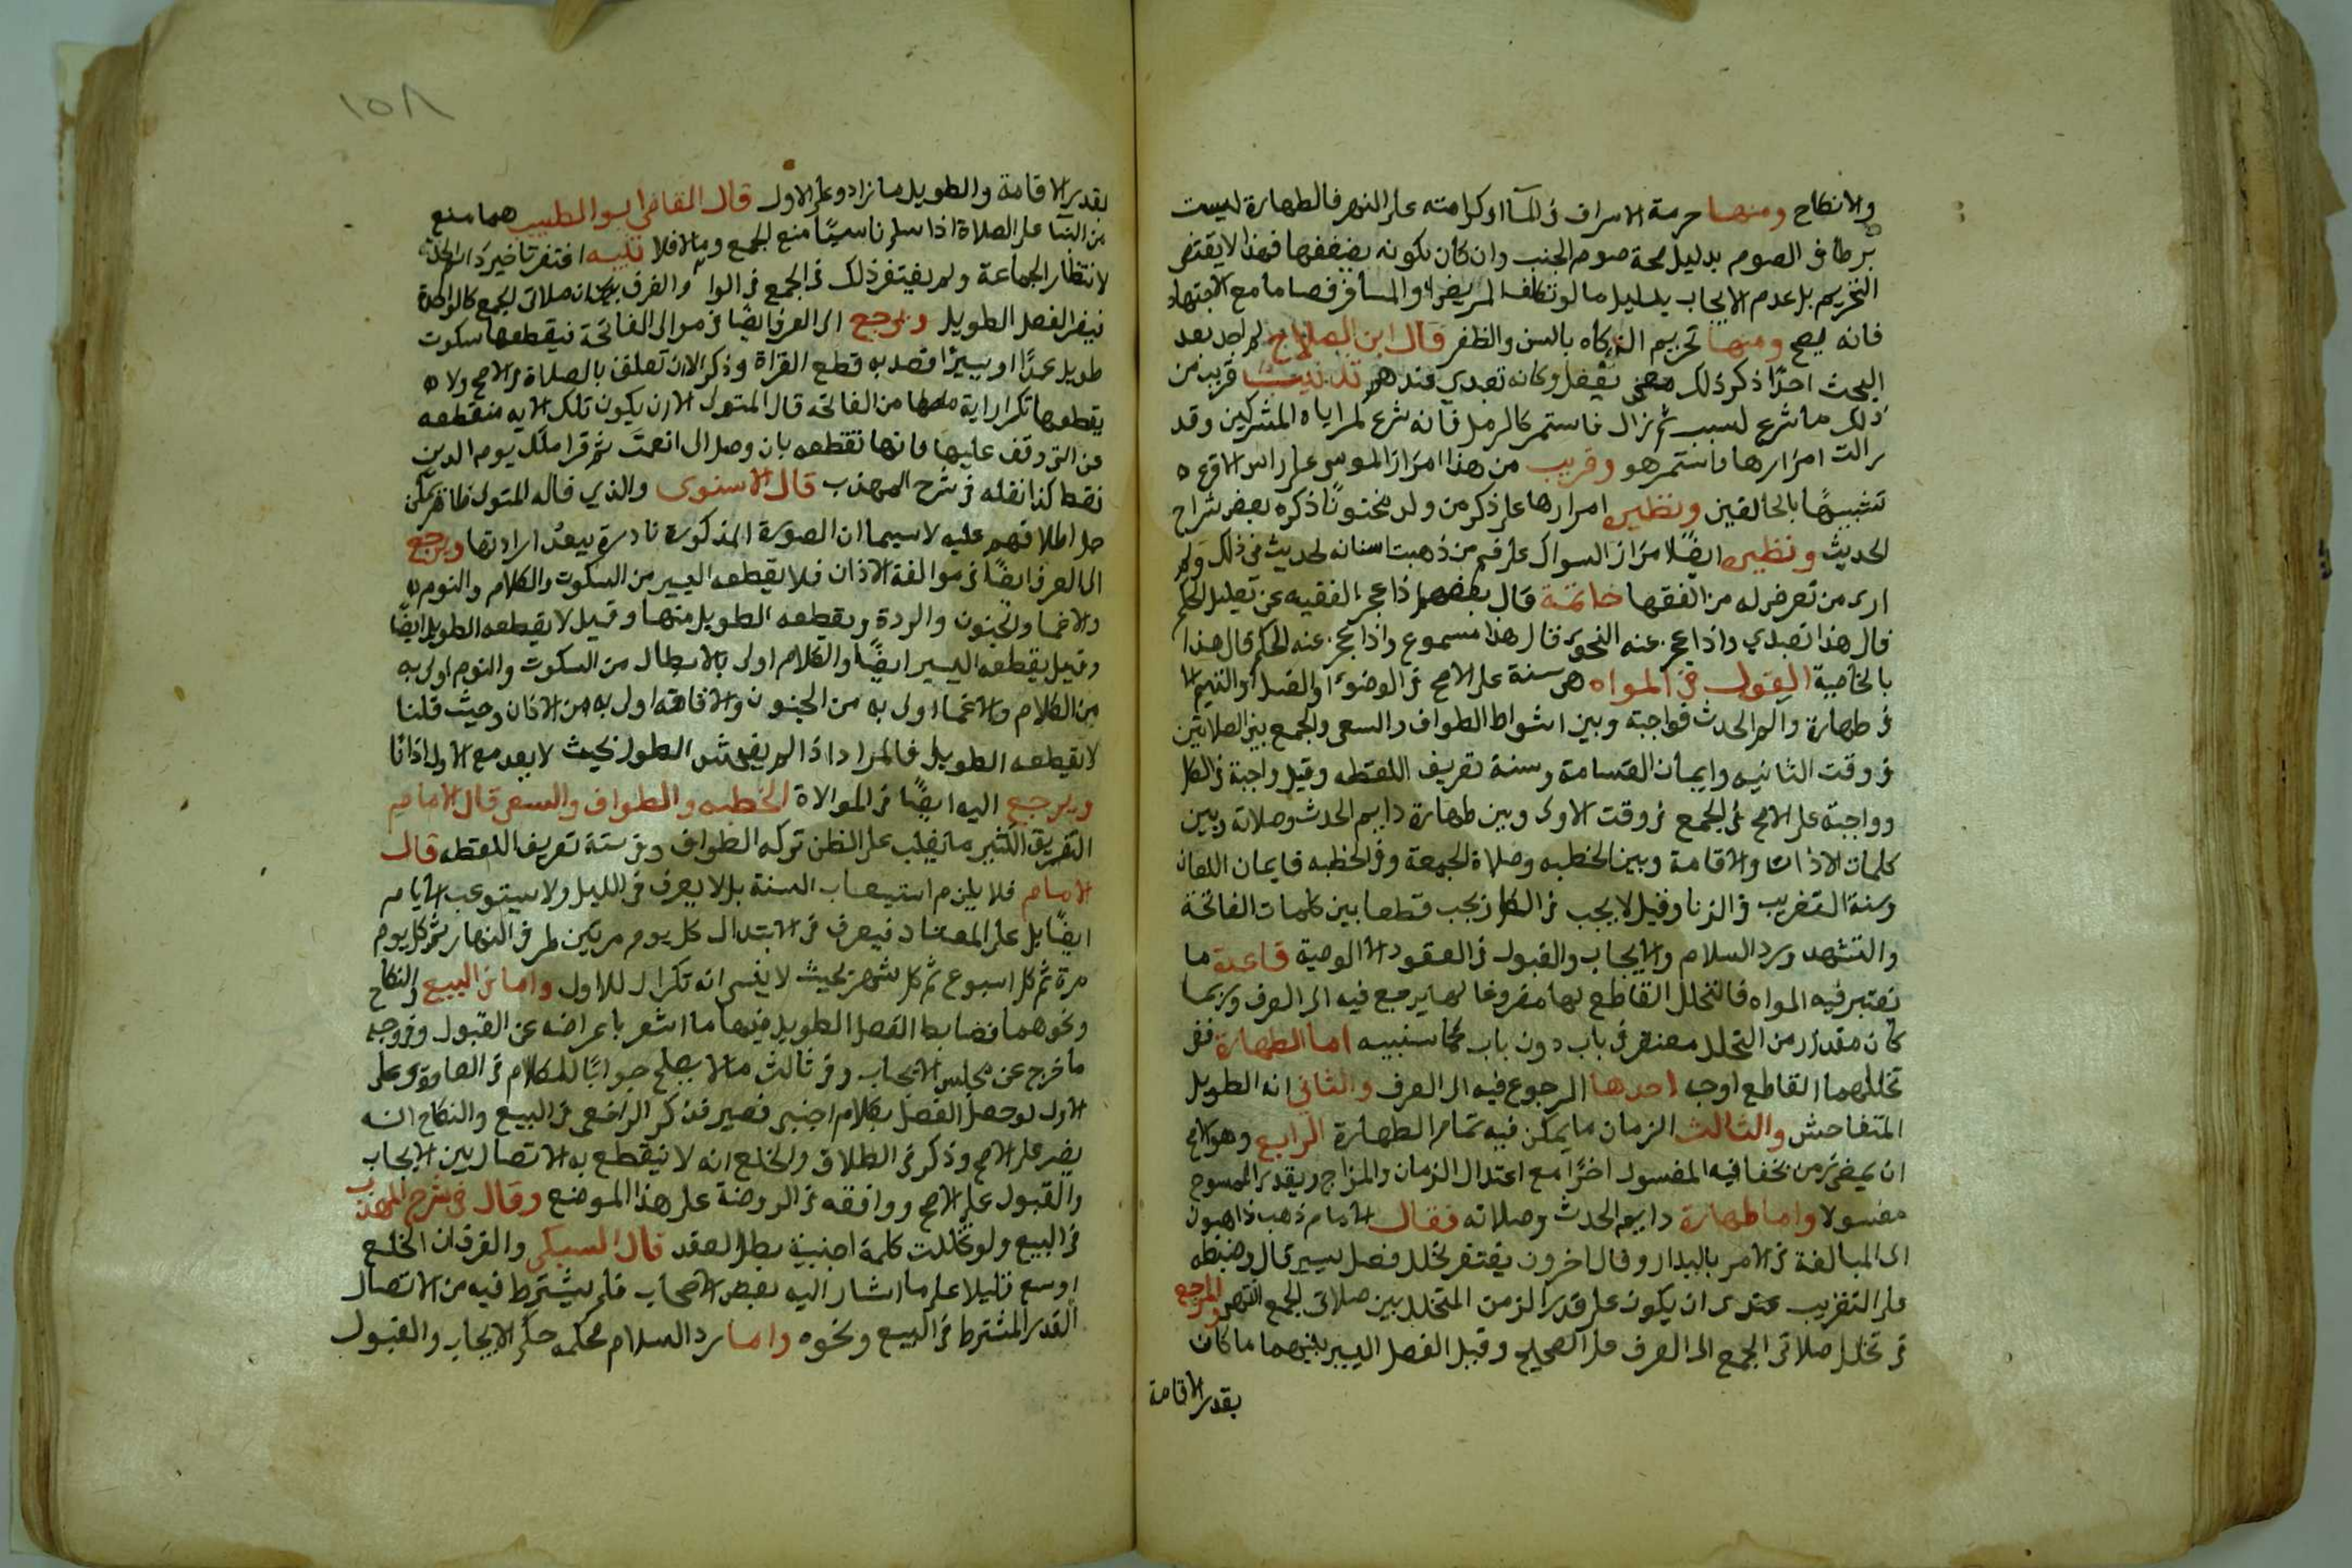 والانكاح ومنها حرمة الاسراف في الماء او كراهته على النهر فالطهارة ليست
شرطا في الصوم بدليل صحة صوم الجنب وان كان بكونه يضعفها فهذا لا يقتضي
التحريم بل عدم الايجاب بدليل ما لو تكلف المريض او المسافر فصاما مع الاجتهاد
فانه يصح ومنها تحريم الذكاة بالسن والظفر قال ابن الصلاح لم اجد بعد
البحث احدا ذكر ذلك معنى يعقل وكانه تعبدي عندهم تذنيب قريب من
ذلك ما شرع لسبب ثم زال فاستمر كالرمل فانه شرع لمراياه المشركين وقد
زالت امرارها واستمر هو وقريب من هذا امرار الموسى على راس الاقرع
تشبيها بالحالقين ونظيره امرارها على ذكر من ولد مختونا ذكره بعض شراح
الحديث ونظيره ايضا امرار السواك على فم من ذهبت اسنانه لحديث في ذلك ولم
ارى من تعرض له من الفقها خاتمة قال بعضهم اذا عجز الفقيه عن تعليل الحكم
قال هذا تعبدي واذا عجز عنه النحوي قال هذا مسموع واذا عجز عنه الحكيم قال هذا
بالخاصية القول في المواله هي سنة على الاصح في الوضوء او الغسل او التيمم الا
في طهارة دايم الحدث فواجبة وبين اشواط الطواف والسعي والجمع بين الصلاتين
في وقت الثانيه وايمان القسامة وسنة تعريف اللقطه وقيل واجبة في الكل
وواجبة على الاصح في الجمع في وقت الاولى وبين طهارة دايم الحدث وصلاته وبين
كلمات الاذان والاقامة وبين الخطبه وصلاة الجمعة وفي الخطبه فايمان اللعان
وسنة التغريب في الزنا وقيل لا يجب في الكل ويجب قطعا بين كلمات الفاتحة
والتشهد ورد السلام والايجاب والقبول في العقود الا الوصية قاعدة ما
تعتبر فيه المواله فالتخلل القاطع لها مفروغا لها يرجع فيه الى العرف وربما
كان مقدار من التخلل مغتفر في باب دون باب كما سنبيه اما الطهارة ففي
تخللهما القاطع اوجه احدها الرجوع فيه الى العرف والثاني انه الطويل
المتفاحش والثالث الزمان ما يمكن فيه تمام الطهارة الرابع وهو الاصح
ان يمضي زمن يجفا فيه المغسول اخرا مع اعتدال الزمان والمزاج ويقدر الممسوح
مغسولا واما طهارة دايم الحدث وصلاته فقال الامام ذهب ذاهبون
الى المبالغة في الامر بالبدار وقال اخرون يغتفر تخلل فصل يسير قال وضبطه
على التقريب عندى ان يكون على قدر الزمن المتخلل بين صلاتي الجمع انتهى والمرجع
في تخلل صلاتى الجمع الى العرف على الصحيح وقيل الفصل اليسير بينهما ما كان
بقدر الاقامة
١٥٨
بقدر الاقامة والطويل ما زاد وعلى الاول قال القاضي ابو الطيب هما منع
من البنا على الصلاة اذا سلم ناسيا منع الجمع وما لا فلا تنبيه اغتفر تاخير
لانتظار الجماعة ولم يغتفر ذلك في الجمع في والفرق بينهما ان صلاتي الجمع كالواحدة
فيضر الفصل الطويل ويرجع الى العرف ايضا في موالى الفاتحة فيقطعها سكوت
طويل عمدا او يسيرا قصد به قطع القراة وذكر الا ان تعلق بالصلاة في الاصح ولا
يقطعها تكرار اية منها من الفاتحه قال المتولى الا ان يكون تلك الايه منقطعه
عن التي وقف عليها فانها تقطعه بان وصل الى انعمت ثم قرا ملك يوم الدين
فقط كذا نقله في شرح المهذب قال الاسنوى والذي قاله المتولى ظاهر يمكن
حمل اطلاقهم عليه لا سيما ان الصورة المذكورة نادرة يبعد ارادتها ويرجع
الى العرف ايضا في موالفة الاذان فلا يقطعه اليسير من السكوت والكلام والنوم
والاغما والجنون والردة ويقطعه الطويل منها وقيل لا يقطعه الطويل ايضا
وقيل يقطعه اليسير ايضا والكلام اولى بالابطال من السكوت والنوم اولى به
من الكلام والاغما اولى به من الجنون والافاقه اولى به من الاذان وحيث قلنا
لا يقطعه الطويل فالمراد اذا لم يفحش الطول بحيث لا يعد مع الاول اذانا
ويرجع اليه ايضا في الموالاة الخطبه والطواف والسعي قال الامام
التفريق الكثير ما يغلب على الظن تركه الطواف وفي سنة تعريف اللقطه قال
الامام فلا يلزم استيعاب السنة بل لا يعرف في الليل ولا يستوعب الايام
ايضا بل على المعتاد فيعرف في الابتدا كل يوم مرتين طرفي النهار ثم كل يوم
مرة ثم كل اسبوع ثم كل شهر بحيث لا ينسى انه تكرار للاول واما في البيع والنكاح
ونحوهما فضابط الفصل الطويل فيهما ما اشعر باعراضه عن القبول وفي وجه
ما خرج عن مجلس الايجاب وفي ثالث ما لا يصلح جوابا للكلام في العادة وعلى
الاول لو حصل الفصل بكلام اجنبي قصير فذكر الرافعى في البيع والنكاح انه
يضر على الاصح وذكر في الطلاق والخلع انه لا ينقطع به الاتصال بين الايجاب
والقبول على الاصح ووافقه في الروضة على هذا الموضع وقال في شرح المهذب
في البيع ولو تخللت كلمة اجنبية بطل العقد قال السبكى والفرق ان الخلع
اوسع قليلا على ما اشار اليه بعض الاصحاب فلم يشترط فيه من الاتصال
القدر المشترط في البيع ونحوه واما رد السلام فحكمه حكم الايجاب والقبول